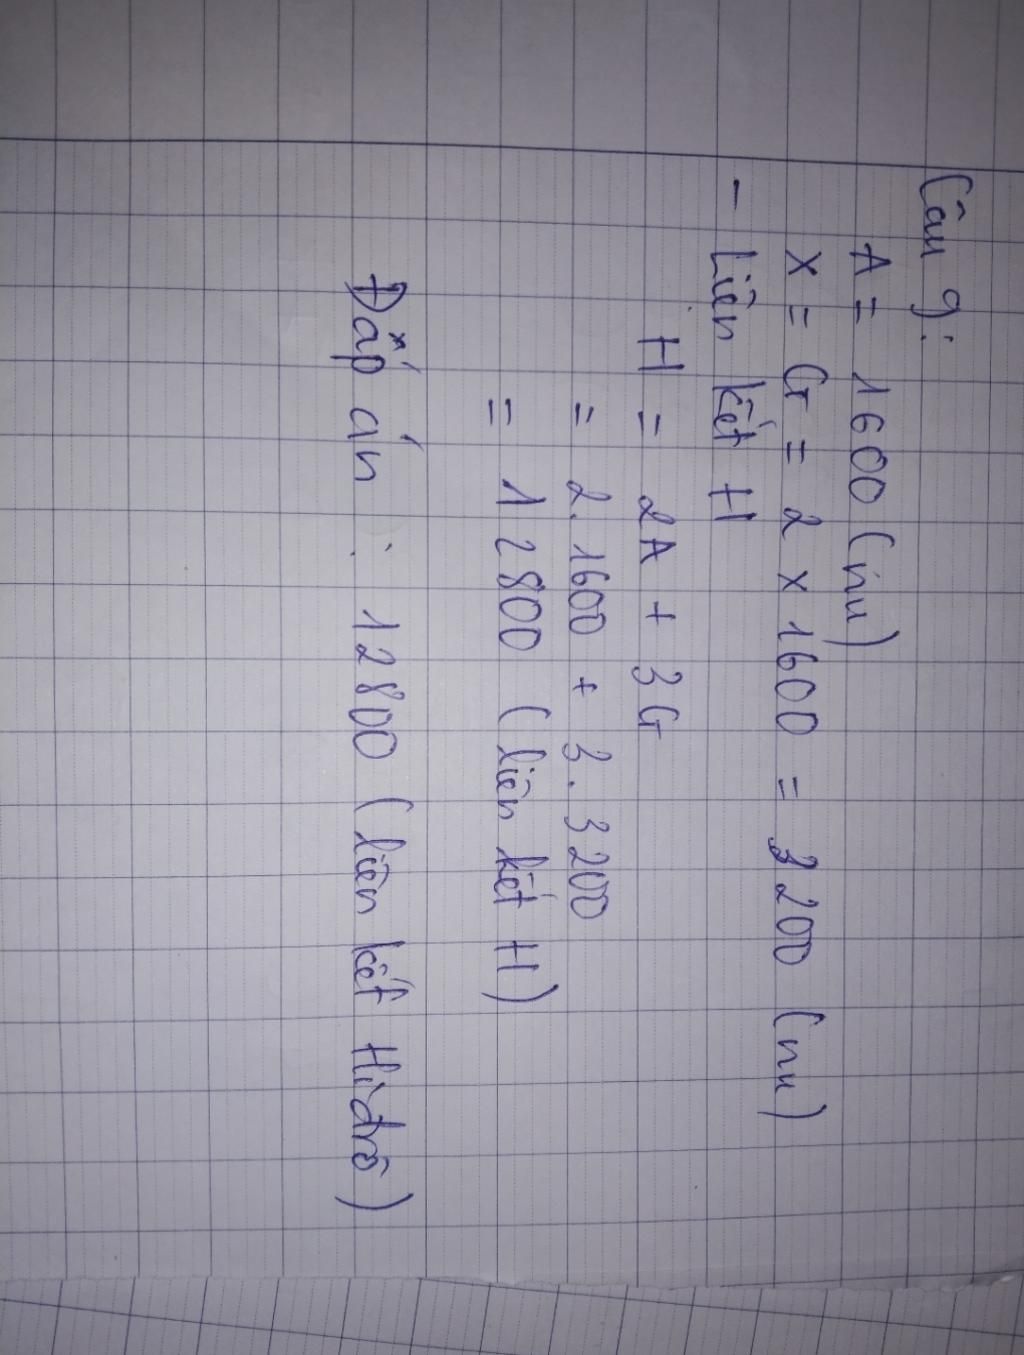 Câu 9:
A = 1600 (nu)
X = G = 2 x 1600 = 3200 (nu)
- Liên kết H
H = 2A + 3G
= 2.1600 + 3.3200
= 12800 (liên kết H)
Đáp án : 12800 (liên kết Hiđrô)